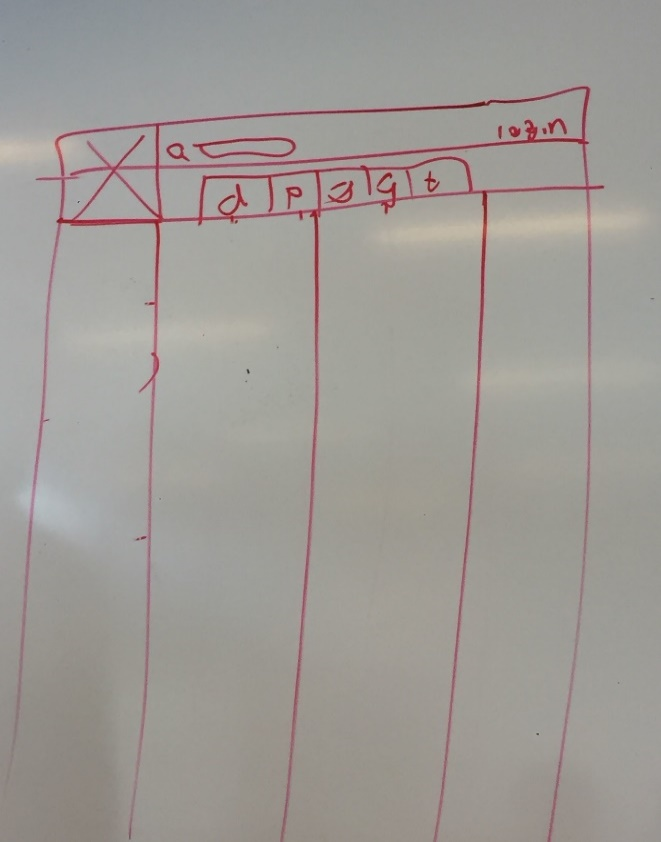 a login
d p s g t